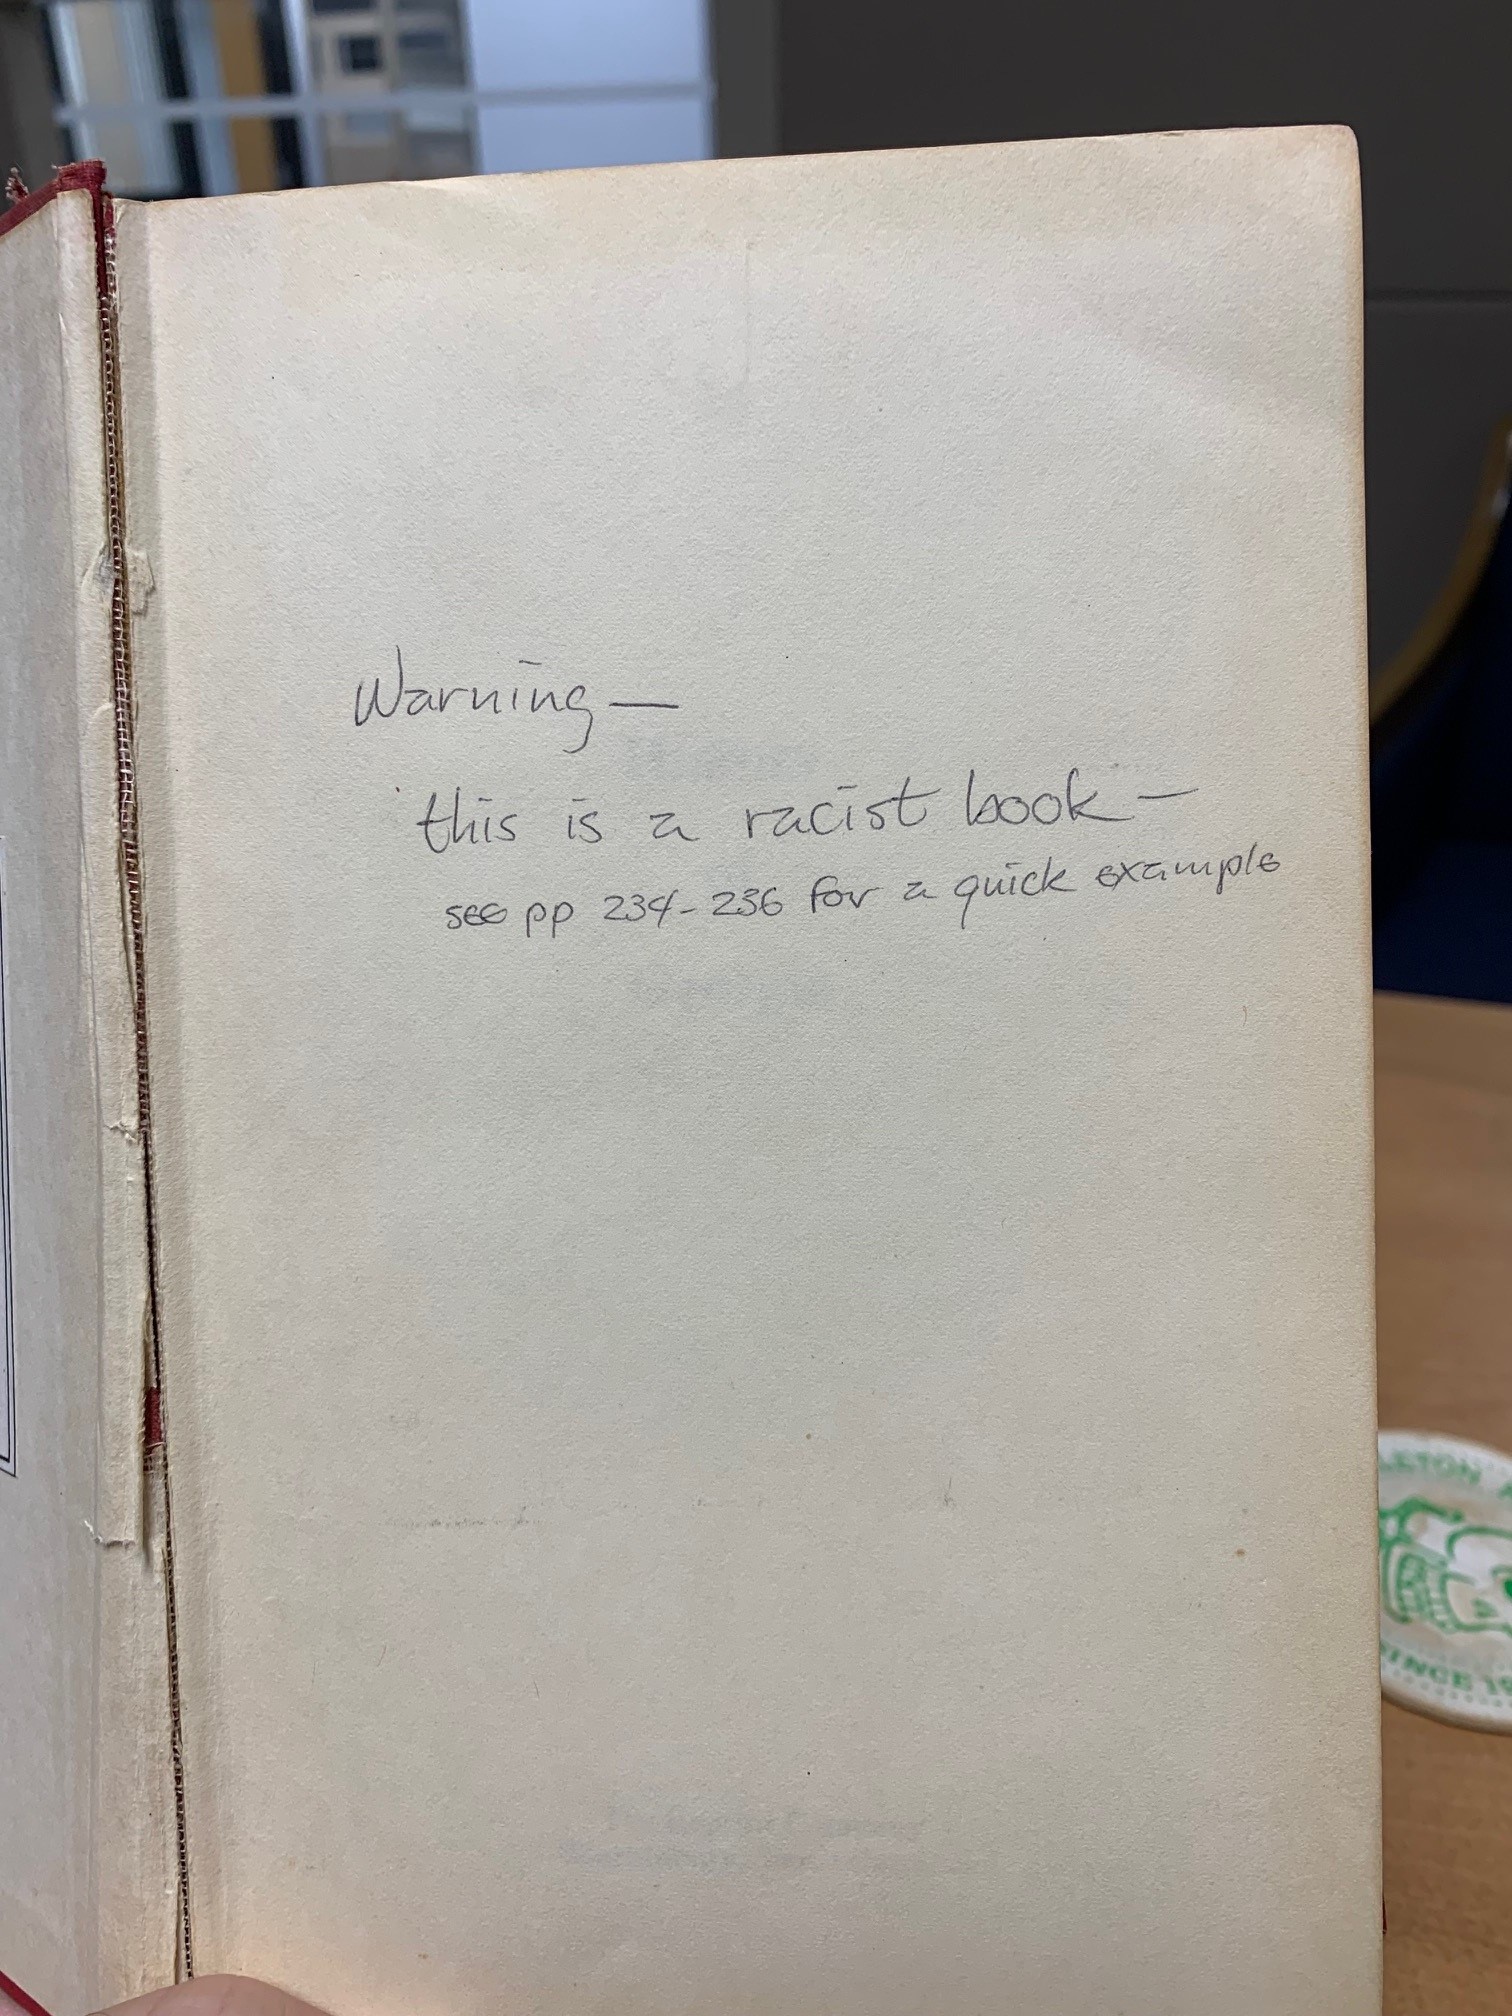 Warning—
this is a racist book—
see pp 234-236 for a quick example
SINCE 19